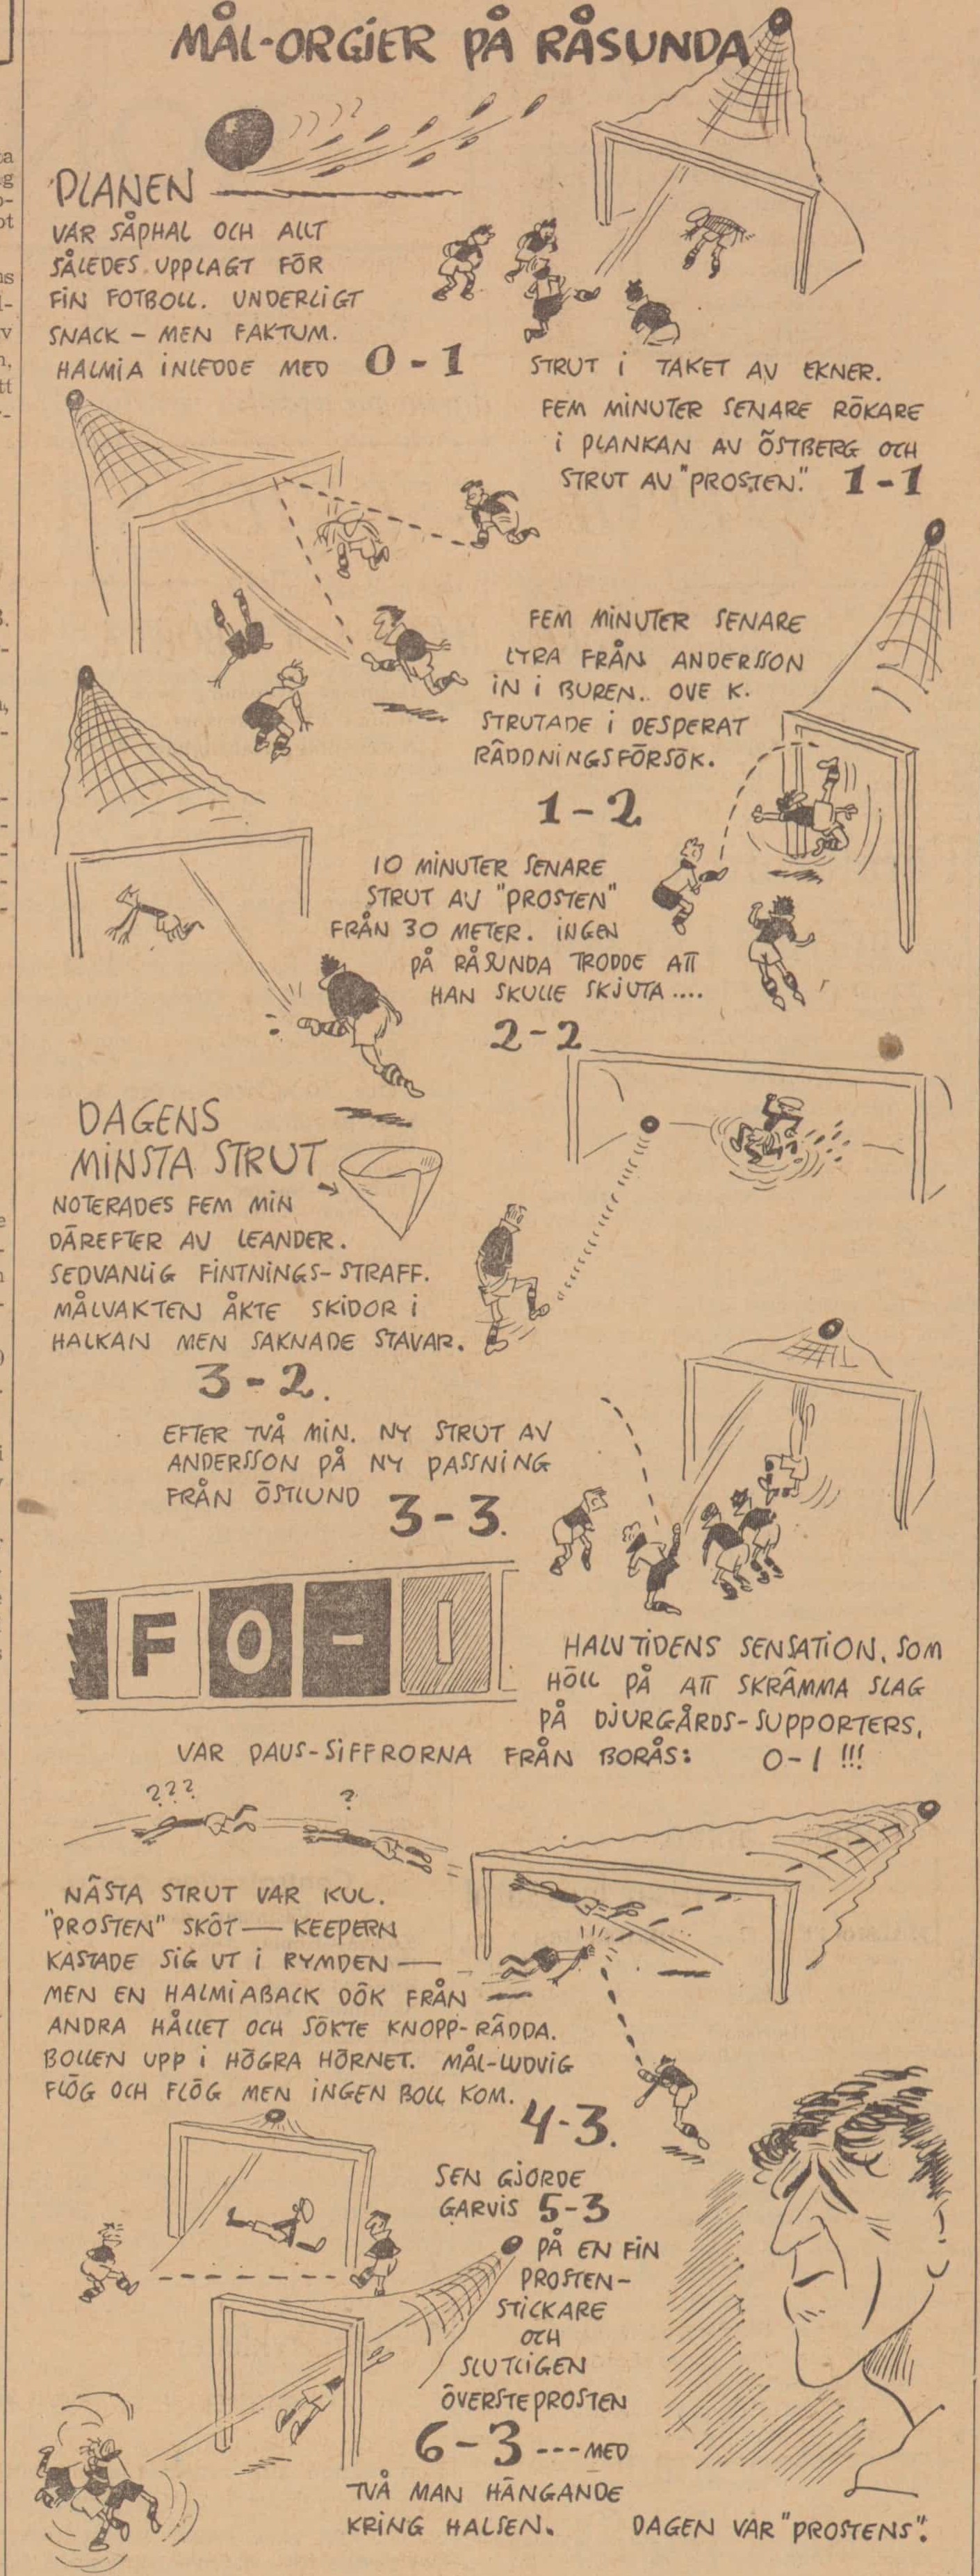 MÅL-ORGIER PÅ RÅSUNDA
PLANEN
VAR SÅPHAL OCH ALLT
SÅLEDES UPPLAGT FÖR
FIN FOTBOLL. UNDERLIGT
SNACK – MEN FAKTUM.
HALMIA INLEDDE MED 0-1 STRUT I TAKET AV EKNER.
FEM MINUTER SENARE RÖKARE
I PLANKAN AV ÖSTBERG OCH
STRUT AV "PROSTEN". 1-1
FEM MINUTER SENARE
LYRA FRÅN ANDERSSON
IN I BUREN.. OVE K.
STRUTADE I DESPERAT
RÄDDNINGSFÖRSÖK.
1-2
10 MINUTER SENARE
STRUT AV "PROSTEN"
FRÅN 30 METER. INGEN
PÅ RÅSUNDA TRODDE ATT
HAN SKULLE SKJUTA....
2-2
DAGENS
MINSTA STRUT
NOTERADES FEM MIN
DÄREFTER AV LEANDER.
SEDVANLIG FINTNINGS-STRAFF.
MÅLVAKTEN ÅKTE SKIDOR I
HALKAN MEN SAKNADE STAVAR.
3-2.
EFTER TVÅ MIN. NY STRUT AV
ANDERSSON PÅ NY PASSNING
FRÅN ÖSTLUND 3-3.
F 0 - 1
HALVTIDENS SENSATION, SOM
HÖLL PÅ ATT SKRÄMMA SLAG
PÅ DJURGÅRDS-SUPPORTERS,
VAR PAUS-SIFFRORNA FRÅN BORÅS: 0-1 !!!
???
?
NÄSTA STRUT VAR KUL.
"PROSTEN" SKÖT — KEEPERN
KASTADE SIG UT I RYMDEN —
MEN EN HALMIABACK DÖK FRÅN
ANDRA HÅLLET OCH SÖKTE KNOPP-RÄDDA.
BOLLEN UPP I HÖGRA HÖRNET. MÅL-LUDVIG
FLÖG OCH FLÖG MEN INGEN BOLL KOM.
4-3.
SEN GJORDE
GARVIS 5-3
PÅ EN FIN
PROSTEN-
STICKARE
OCH
SLUTLIGEN
ÖVERSTEPROSTEN
6-3 --- MED
TVÅ MAN HÄNGANDE
KRING HALSEN.
DAGEN VAR "PROSTENS".